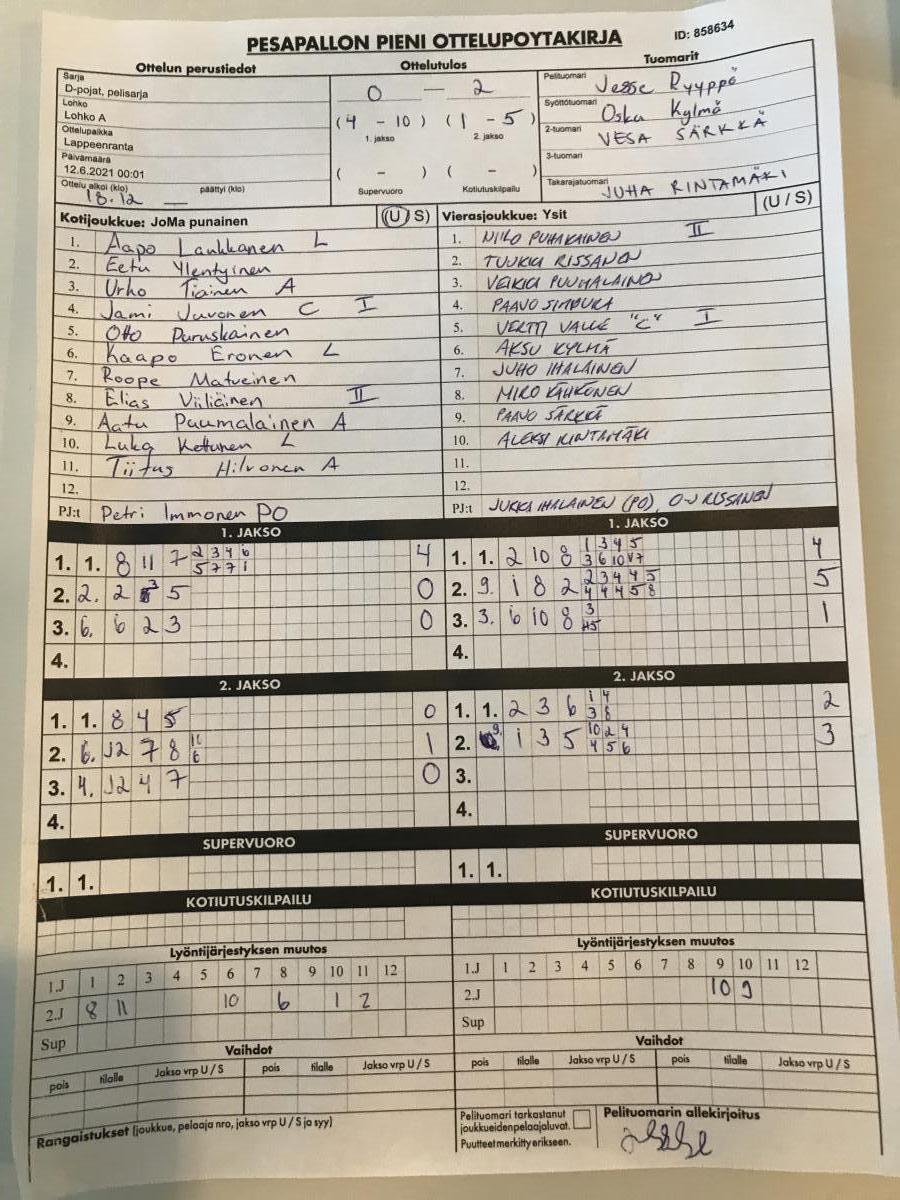 PESAPALLON PIENI OTTELUPOYTAKIRJA ID: 858634
Ottelun perustiedot Ottelutulos Tuomarit
Sarja
D-pojat, pelisarja
Lohko
Lohko A
Ottelupaikka
Lappeenranta
Päivämäärä
12.6.2021 00:01
Ottelu alkoi (klo) päättyi (klo)
18.12 —
0 — 2
(4 - 10) (1 - 5)
1. jakso 2. jakso
( - ) ( - )
Supervuoro Kotiutuskilpailu
Pelituomari Jesse Ryyppö
Syöttötuomari Osku Kylmä
2-tuomari VESA SÄRKKÄ
3-tuomari
Takarajatuomari JUHA RINTAMÄKI
Kotijoukkue: JoMa punainen (U / S)
1. Aapo Laukkanen L
2. Eetu Ylentyinen
3. Urho Tiainen A
4. Jami Juvonen C I
5. Otto Puruskainen
6. Kaapo Eronen L
7. Roope Matveinen
8. Elias Viiliäinen II
9. Aatu Puumalainen A
10. Luka Kettunen L
11. Tiitus Hilvonen A
12.
PJ:t Petri Immonen PO
Vierasjoukkue: Ysit (U / S)
1. NIILO PUHAKAINEN II
2. TUUKKA RISSANEN
3. VEIKKA PUUMALAINEN
4. PAAVO
5. VERTTI VALLE "C" I
6. AKSU KYLMÄ
7. JUHO IHALAINEN
8. MIRO KÄHKÖNEN
9. PAAVO SÄRKKÄ
10. ALEKSI RINTAMÄKI
11.
12.
PJ:t JUKKA IHALAINEN (PO), O-V RISSANEN
1. JAKSO
1. 1. 8 11 7 2 3 4 6 4
5 7 7 1
2. 2. 2 3 5 0
3. 6. 6 2 3 0
4.
1. JAKSO
1. 1. 2 10 8 1 3 4 5 4
3 6 10 7
2. 9. 1 8 2 2 3 4 4 5 5
4 4 4 5 8
3. 3. 6 10 8 3 1
4.
2. JAKSO
1. 1. 8 4 5 0
2. 6. J2 7 8 1
6
3. 4. J2 4 7 0
4.
2. JAKSO
1. 1. 2 3 6 1 4 2
3 8
2. 9. 1 3 5 10 2 4 3
4 5 6
3.
4.
SUPERVUORO
1. 1.
SUPERVUORO
1. 1.
KOTIUTUSKILPAILU
KOTIUTUSKILPAILU
Lyöntijärjestyksen muutos
1.J 1 2 3 4 5 6 7 8 9 10 11 12
2.J 8 11 10 6 1 2
Sup
Lyöntijärjestyksen muutos
1.J 1 2 3 4 5 6 7 8 9 10 11 12
2.J 10 9
Sup
Vaihdot
pois tilalle Jakso vrp U / S pois tilalle Jakso vrp U / S
Vaihdot
pois tilalle Jakso vrp U / S pois tilalle Jakso vrp U / S
Rangaistukset (joukkue, pelaaja nro, jakso vrp U / S ja syy)
Pelituomari tarkastanut
joukkueidenpelaajaluvat.
Puutteet merkitty erikseen.
Pelituomarin allekirjoitus